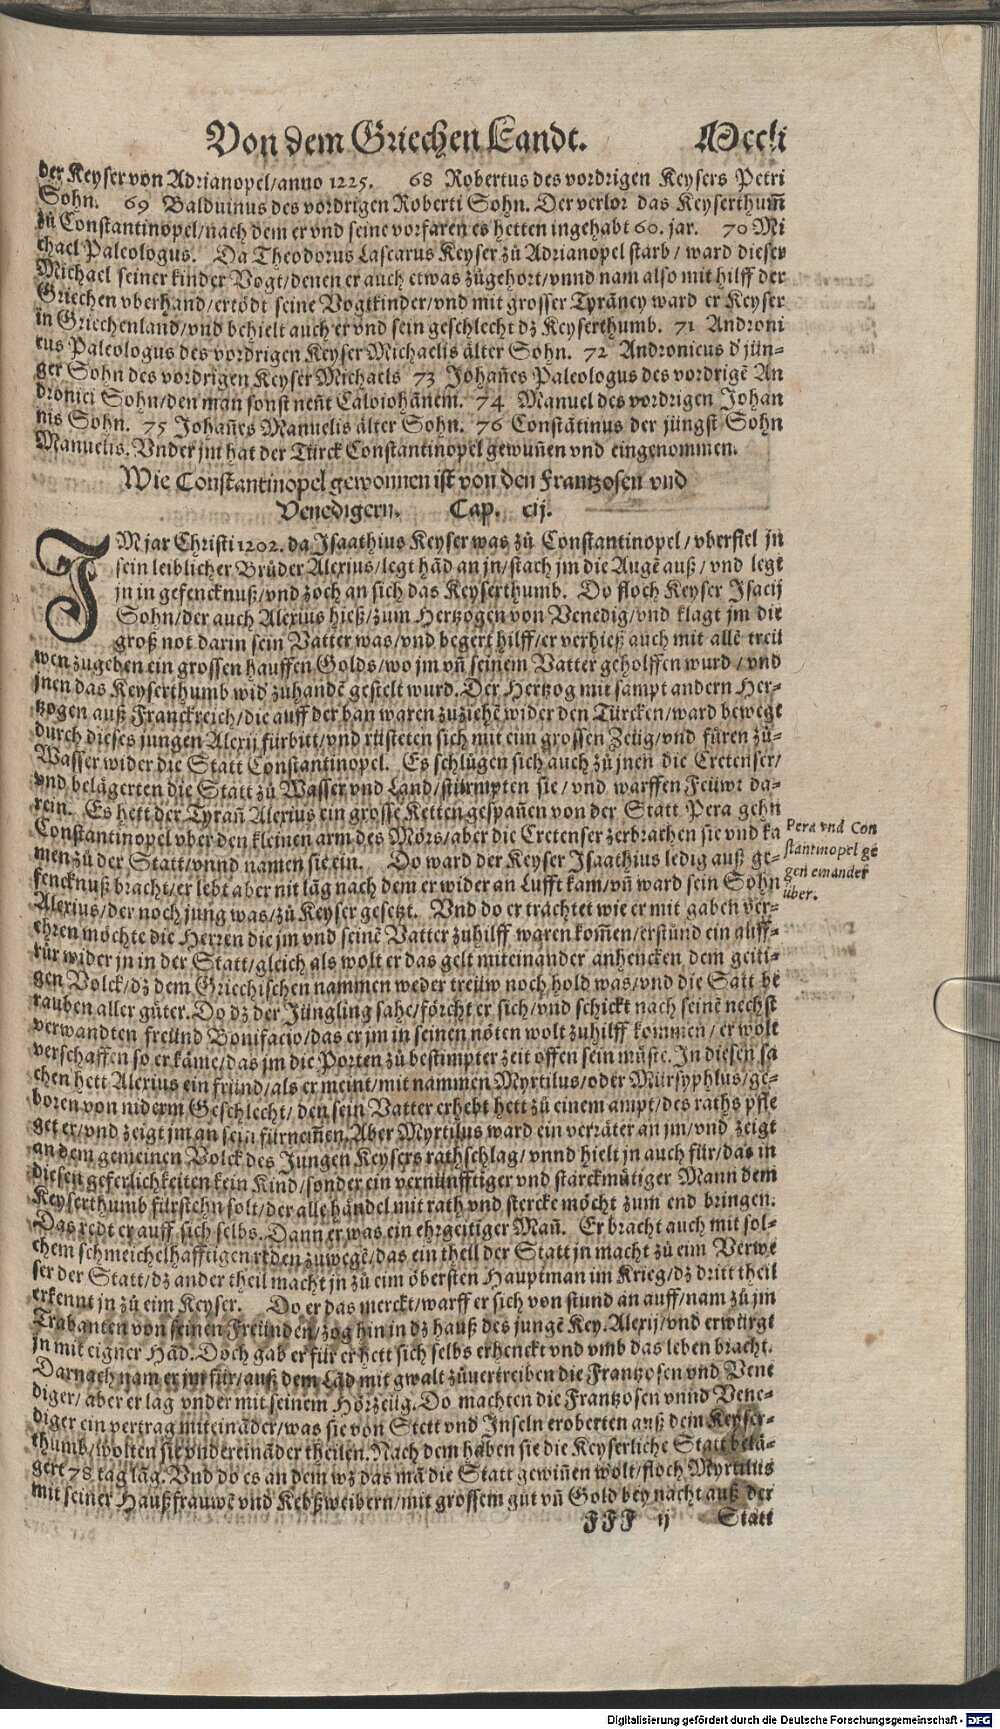 Von dem Griechen Landt. Mccli
der Keyser von Adrianopel/anno 1225. 68 Robertus des vordrigen Keysers Petri
Sohn. 69 Balduinus des vordrigen Roberti Sohn. Der verlor das Keyserthum̃
zů Constantinopel/nach dem er vnd seine vorfaren es hetten ingehabt 60. jar. 70 Mi
chael Paleologus. Da Theodorus Lascarus Keyser zů Adrianopel starb/ward dieser
Michael seiner kinder Vogt/denen er auch etwas zůgehort/vnnd nam also mit hilff der
Griechen vberhand/ertödt seine Vogtkinder/vnd mit grosser Tyrãney ward er Keyser
in Griechenland/vnd behielt auch er vnd sein geschlecht dz Keyserthumb. 71 Androni
cus Paleologus des vordrigen Keyser Michaelis älter Sohn. 72 Andronicus d' jün-
ger Sohn des vordrigen Keyser Michaels 73 Johañes Paleologus des vordrigẽ An
dronici Sohn/den man sonst neñt Caloiohãnem. 74 Manuel des vordrigen Johan
nis Sohn. 75 Johañes Manuelis älter Sohn. 76 Constãtinus der jüngst Sohn
Manuelis. Vnder jm hat der Türck Constantinopel gewuñen vnd eingenommen.
Wie Constantinopel gewonnen ist von den Frantzosen vnd
Venedigern. Cap. cij.
IM jar Christi 1202. da Isaathius Keyser was zů Constantinopel/vberfiel jn
sein leiblicher Brůder Alexius/legt hãd an jn/stach jm die Augẽ auß/vnd legt
jn in gefencknuß/vnd zoch an sich das Keyserthumb. Do floch Keyser Isacij
Sohn/der auch Alexius hieß/zum Hertzogen von Venedig/vnd klagt jm die
groß not darin sein Vatter was/vnd begert hilff/er verhieß auch mit allẽ treü
wen zugeben ein grossen hauffen Golds/wo jm vñ seinem Vatter geholffen wurd/vnd
jnen das Keyserthumb wid' zuhandẽ gestelt wurd. Der Hertzog mit sampt andern Her-
tzogen auß Franckreich/die auff der ban waren zuziehẽ wider den Türcken/ward bewegt
durch dieses jungen Alexij fürbitt/vnd rüsteten sich mit eim grossen Zeüg/vnd fůren zů-
Wasser wider die Statt Constantinopel. Es schlůgen sich auch zů jnen die Cretenser/
vnd belägerten die Statt zů Wasser vnd Land/stürmpten sie/vnd warffen Feüwr da-
rein. Es hett der Tyrañ Alexius ein grosse Ketten gespañen von der Statt Pera gehn
Constantinopel vber den kleinen arm des Mörs/aber die Cretenser zerbrachen sie vnd ka
men zů der Statt/vnnd namen sie ein. Do ward der Keyser Isaathius ledig auß ge-
fencknuß bracht/er lebt aber nit lãg nach dem er wider an Lufft kam/vñ ward sein Sohn
Alexius/der noch jung was/zů Keyser gesetzt. Vnd do er trachtet wie er mit gaben ver-
ehren möchte die Herren die jm vnd seinẽ Vatter zuhilff waren kom̃en/erstůnd ein auff-
růr wider jn in der Statt/gleich als wolt er das gelt miteinander anhencken dem geiti-
gen Volck/dz dem Griechischen nammen weder treüw noch hold was/vnd die Satt be
rauben aller güter. Do dz der Jüngling sahe/förcht er sich/vnd schickt nach seinẽ nechst
verwandten freünd Bonifacio/das er jm in seinen nöten wolt zuhilff kommen/er wolt
verschaffen so er käme/das jm die Porten zů bestimpter zeit offen sein müste. In diesen sa
chen hett Alexius ein fründ/als er meint/mit nammen Myrtilus/oder Mürsyphlus/ge-
boren von niderm Geschlecht/den sein Vatter erhebt hett zů einem ampt/des raths pfle
get er/vnd zeigt jm an sein fürnem̃en. Aber Myrtilus ward ein verräter an jm/vnd zeigt
an dem gemeinen Volck des Jungen Keysers rathschlag/vnnd hielt jn auch für/das in
diesen geferlichkeiten kein Kind/sonder ein vernünfftiger vnd starckmütiger Mann dem
Keyserthumb fürstehn solt/der alle händel mit rath vnd stercke möcht zum end bringen.
Das redt er auff sich selbs. Dann er was ein ehrgeitiger Mañ. Er bracht auch mit sol-
chem schmeichelhafftigen reden zuwegẽ/das ein theil der Statt jn macht zů eim Verwe
ser der Statt/dz ander theil macht jn zů eim öbersten Hauptman im Krieg/dz dritt theil
erkennt jn zů eim Keyser. Do er das merckt/warff er sich von stund an auff/nam zů jm
Trabanten von seinen Freünden/zog hin in dz hauß des jungẽ Key. Alexij/vnd erwürgt
jn mit eigner Hãd. Doch gab er für er hett sich selbs erhenckt vnd vmb das leben bracht.
Darnach nam er jm für/auß dem Lãd mit gwalt zůuertreiben die Frantzosen vnd Vene
diger/aber er lag vnder mit seinem Hörzeüg. Do machten die Frantzosen vnnd Vene-
diger ein vertrag miteinãder/was sie von Stett vnd Inseln eroberten auß dem Keyser-
thumb/wolten sie vndereinãder theilen. Nach dem haben sie die Keyserliche Statt belä-
gert 78 tag lãg. Vnd do es an dem wz das mã die Statt gewiñen wolt/floch Myrtilus
mit seiner Haußfrauwẽ vnd Kebßweibern/mit grossem gůt vñ Gold bey nacht auß der
FFF ij Statt
Pera vnd Con
stantinopel gẽ
gen einander
über.
Digitalisierung gefördert durch die Deutsche Forschungsgemeinschaft - DFG